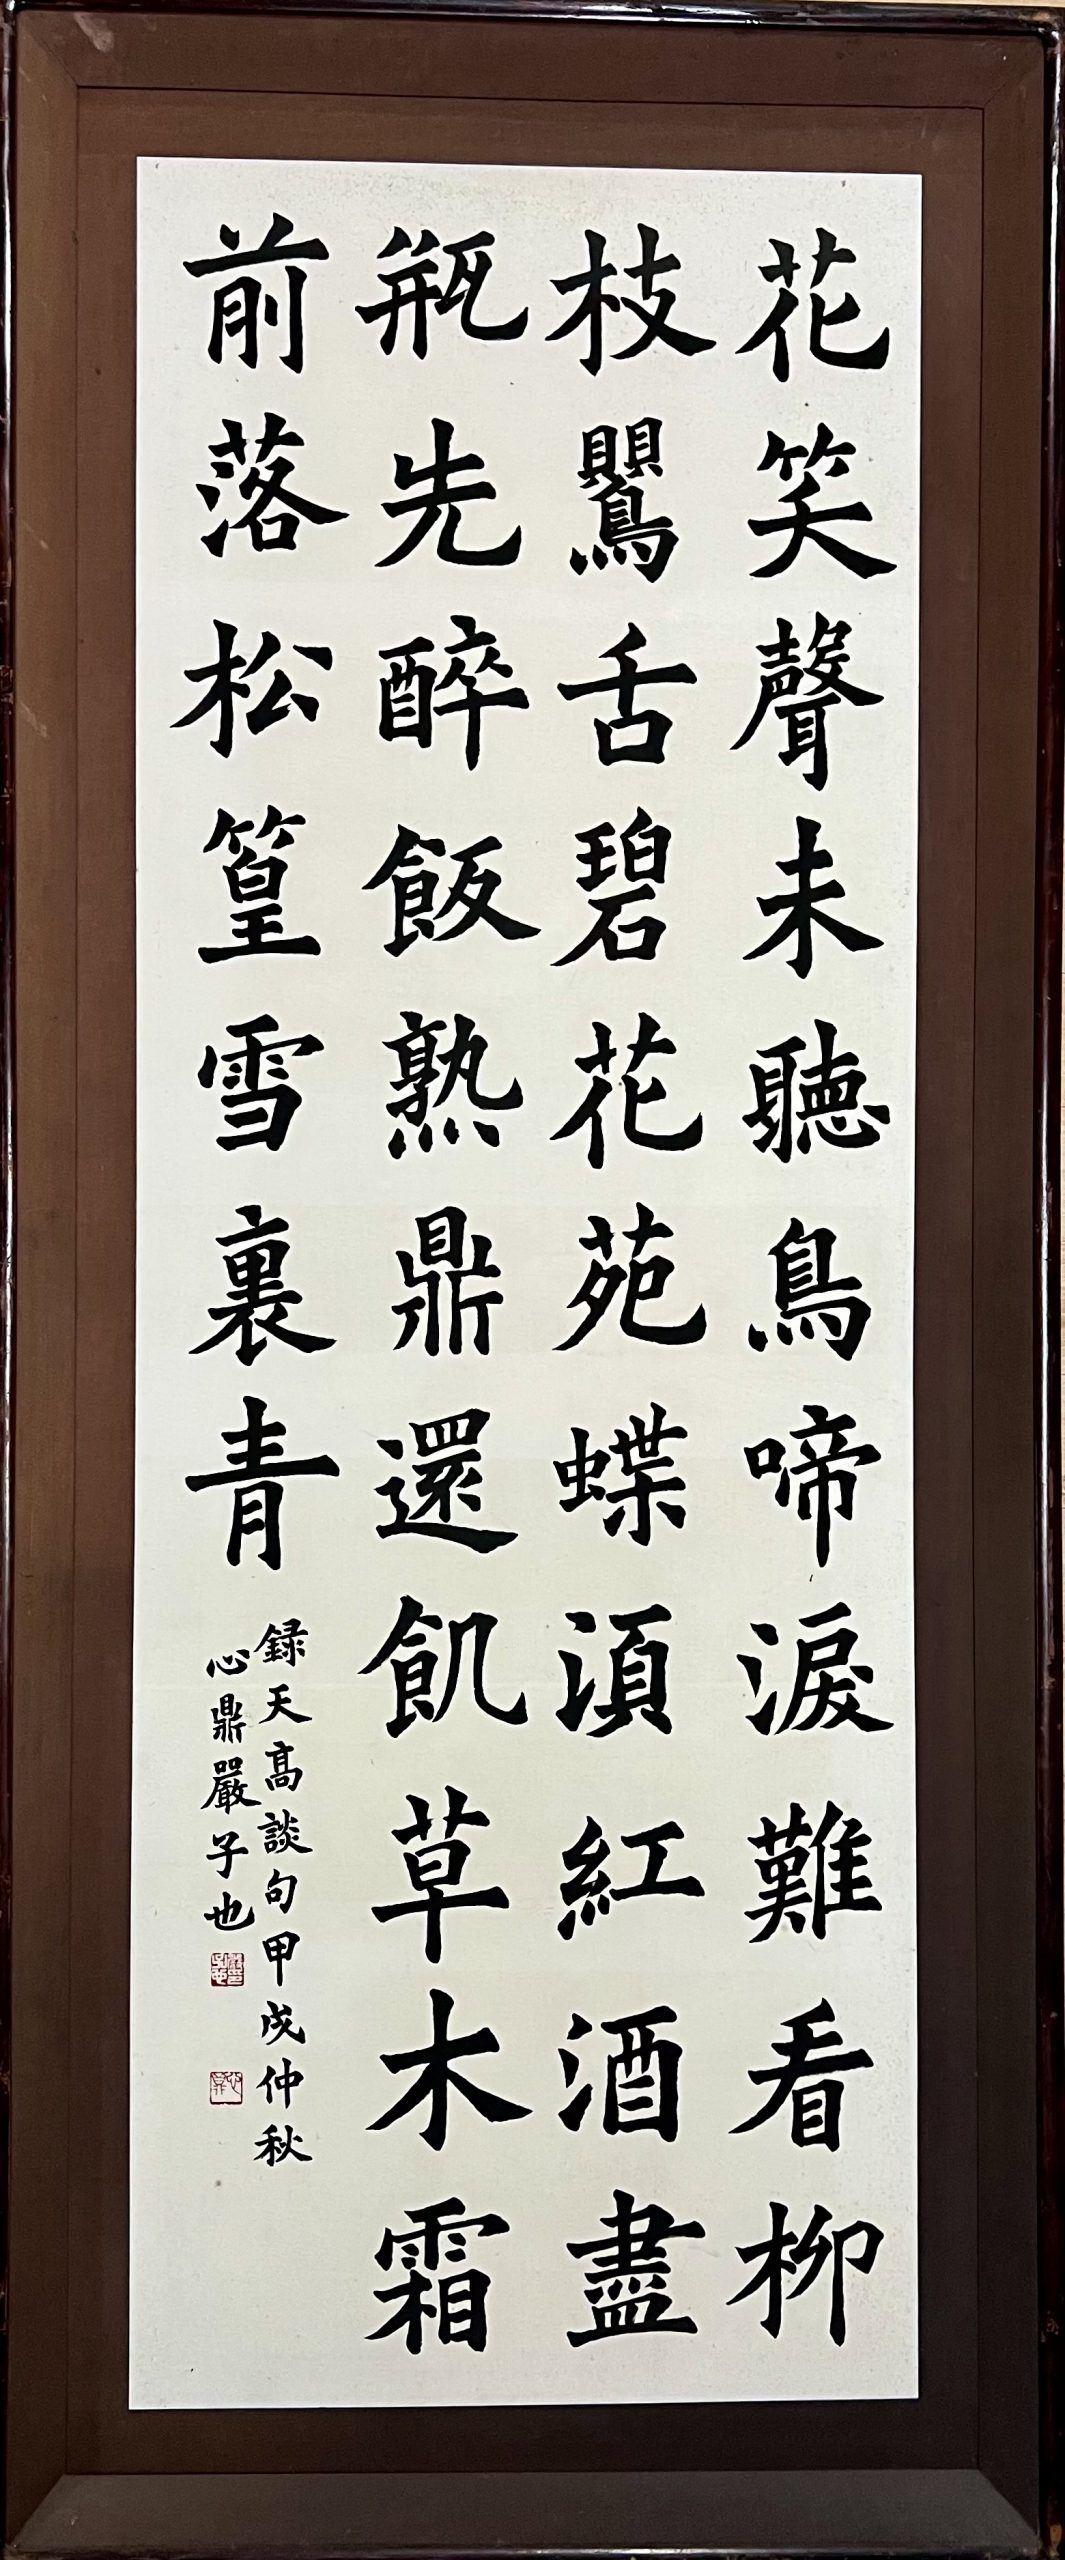 花笑聲未聽鳥啼淚難看柳
枝鸎舌碧花苑蝶湏紅酒盡
瓶先醉飯熟鼎還飢草木霜
前落松篁雪裏青
録天高談句甲戌仲秋
心鼎嚴子也